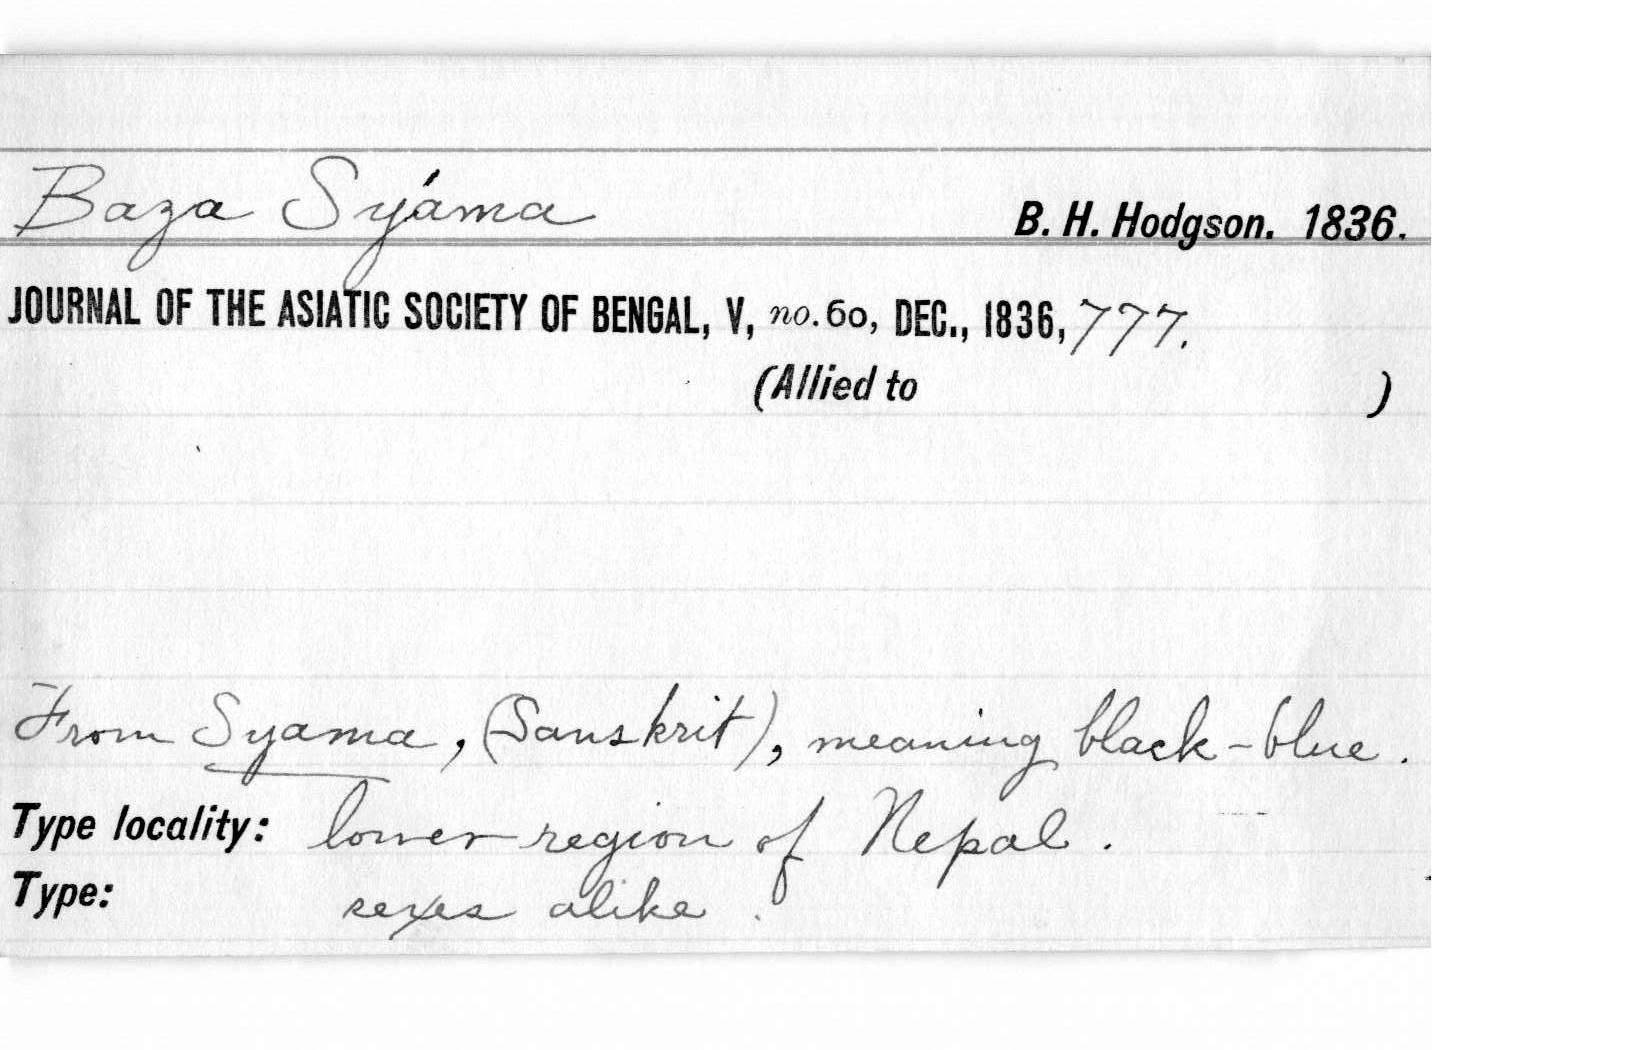 Baza Syáma B. H. Hodgson. 1836.
JOURNAL OF THE ASIATIC SOCIETY OF BENGAL, V, no. 60, DEC., 1836, 777.
(Allied to )
From Syama, (Sanskrit), meaning black-blue.
Type locality: lower region of Nepal.
Type: sexes alike.